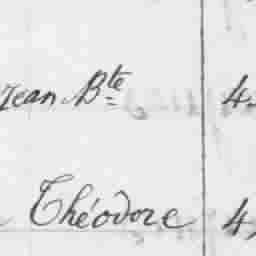 Jean Bte 4
Théodore 4